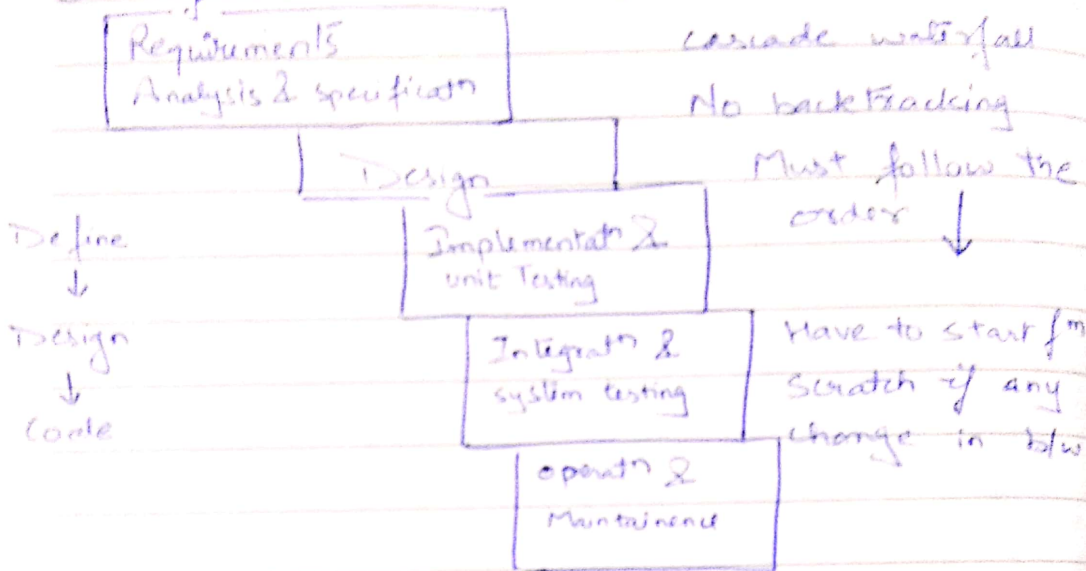 Requirements
Analysis & specificatn
Design
Implementatn &
unit Testing
Integratn &
system testing
operatn &
Maintainence
cascade waterfall
No backtracking
Must follow the
order ↓
Have to start fm
scratch if any
change in b/w
Define
↓
Design
↓
Code